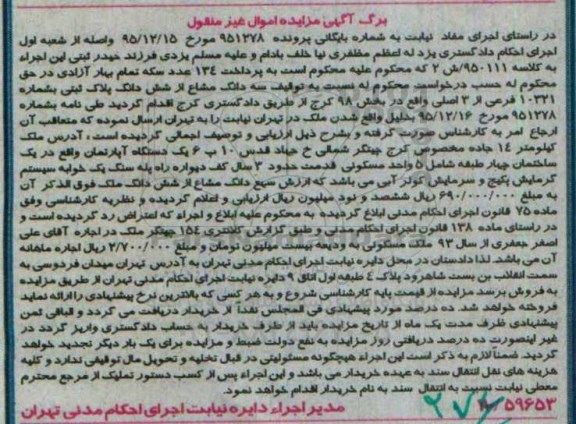 برگ آگهی مزایده اموال غیر منقول
در راستای اجرای مفاد نیابت به شماره بایگانی پرونده ۹۵۱۲۷۸ مورخ ۹۵/۱۲/۱۵ واصله از شعبه اول
اجرای احکام دادگستری یزد له اعظم مظفری نیا خلف بادام و علیه مسلم یزدی فرزند حیدر ثبتی این اجراء
به کلاسه ۹۵۰۱۱۱/ش ۲ که محکوم علیه محکوم است به پرداخت ۱۳۴ عدد سکه تمام بهار آزادی در حق
محکوم له حسب درخواست محکوم له نسبت به توقیف سه دانگ مشاع از شش دانگ پلاک ثبتی بشماره
۱۰۳۲۱ فرعی از ۳ اصلی واقع در بخش ۹۸ کرج از طریق دادگستری کرج اقدام گردید طی نامه بشماره
۹۵۱۲۷۸ مورخ ۹۵/۱۲/۱۶ بدلیل واقع شدن ملک در تهران نیابت را به تهران ارسال نموده که متعاقب آن
ارجاع امر به کارشناس صورت گرفته و بشرح ذیل ارزیابی و توصیف اجمالی گردیده است ، آدرس ملک
کیلومتر ۱۴ جاده مخصوص کرج چیتگر شمالی خ جهاد قدس ۱۰ ب ۶ یک دستگاه آپارتمان واقع در یک
ساختمان چهار طبقه شامل ۵ واحد مسکونی قدمت حدود ۳ سال کف دیواره راه پله سنگ یک خوابه سیستم
گرمایش پکیج و سرمایش کولر آبی می باشد که ارزش سهم دانگ مشاع از شش دانگ ملک فوق الذکر آن
به مبلغ ۶۹۰/۰۰۰/۰۰۰ ریال ششصد و نود میلیون ریال ارزیابی و اعلام گردیده و نظریه کارشناسی وفق
ماده ۷۵ قانون اجرای احکام مدنی ابلاغ گردیده به محکوم علیه ابلاغ و اجراء که اعتراض رد گردیده است و
در راستای ماده ۱۳۸ قانون اجرای احکام مدنی و طبق گزارش کلانتری ۱۵۴ چیتگر ملک در اجاره آقای علی
اصغر جعفری از سال ۹۳ ملک مسکونی به ودیعه بیست میلیون تومان و مبلغ ۲/۷۰۰/۰۰۰ ریال اجاره ماهانه
آن می باشد. لذا دادستان در محل دایره نیابت اجرای احکام مدنی تهران به آدرس تهران میدان فردوسی به
سمت انقلاب بن بست شاهرود پلاک ۴ طبقه اول اتاق ۹ دایره نیابت اجرای احکام مدنی تهران از طریق مزایده
به فروش برسد مزایده از قیمت پایه کارشناسی شروع و به هر کسی که بالاترین نرخ پیشنهادی را ارائه نماید
فروخته خواهد شد. ده درصد مورد پیشنهادی فی المجلس نقداً از خریدار دریافت می گردد و الباقی ثمن
پیشنهادی ظرف مدت یک ماه از تاریخ مزایده باید از طرف خریدار به حساب دادگستری واریز گردد در
غیر اینصورت ده درصد دریافتی روز مزایده به نفع دولت ضبط و مزایده برای یک بار دیگر تجدید خواهد
گردید. ضمناً لازم به ذکر است این اجراء هیچگونه مسئولیتی در قبال تخلیه و تحویل مال توقیفی ندارد و کلیه
هزینه های نقل انتقال سند به عهده خریدار می باشد و این اجراء پس از کسب دستور تملیک از مرجع محترم
معطی نیابت نسبت به انتقال سند به نام خریدار اقدام خواهد نمود.
۵۹۶۵۳ مدیر اجراء دایره نیابت اجرای احکام مدنی تهران